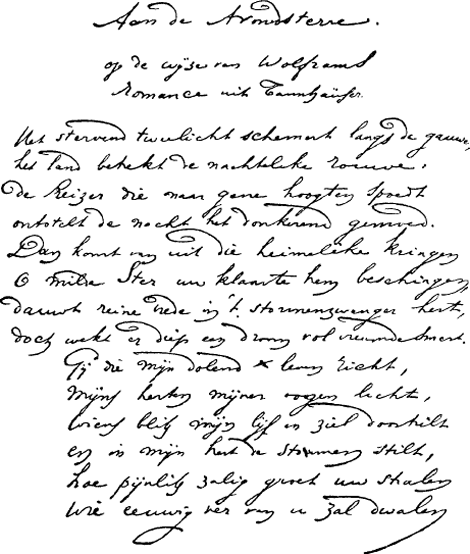 Aan de Avondsterre.
op de wijze van Wolframs
Romance uit Tannhäuser.
Het stervend twielicht schemert langs de gauwe,
het land bedekt de nachtelike rouwe.
de Reizer die naar gene hoogten spoedt
ontstelt de nacht het donkerend gemoed.
Dan komt van uit die heimelike kringen
O milde Ster uw klaarte hem beschingen,
dauwt reine vrede in 't stormenzwanger hert,
doch wekt er diep een droom vol vreemde smert.
Gij die mijn dolend leven richt,
Mijns herten mijner oogen licht,
wiens blik mijn lijf en ziel doorstilt
en in mijn hert de stormen stilt,
hoe pijnlik zalig groet uw stralen
wie eeuwig ver van u zal dwalen